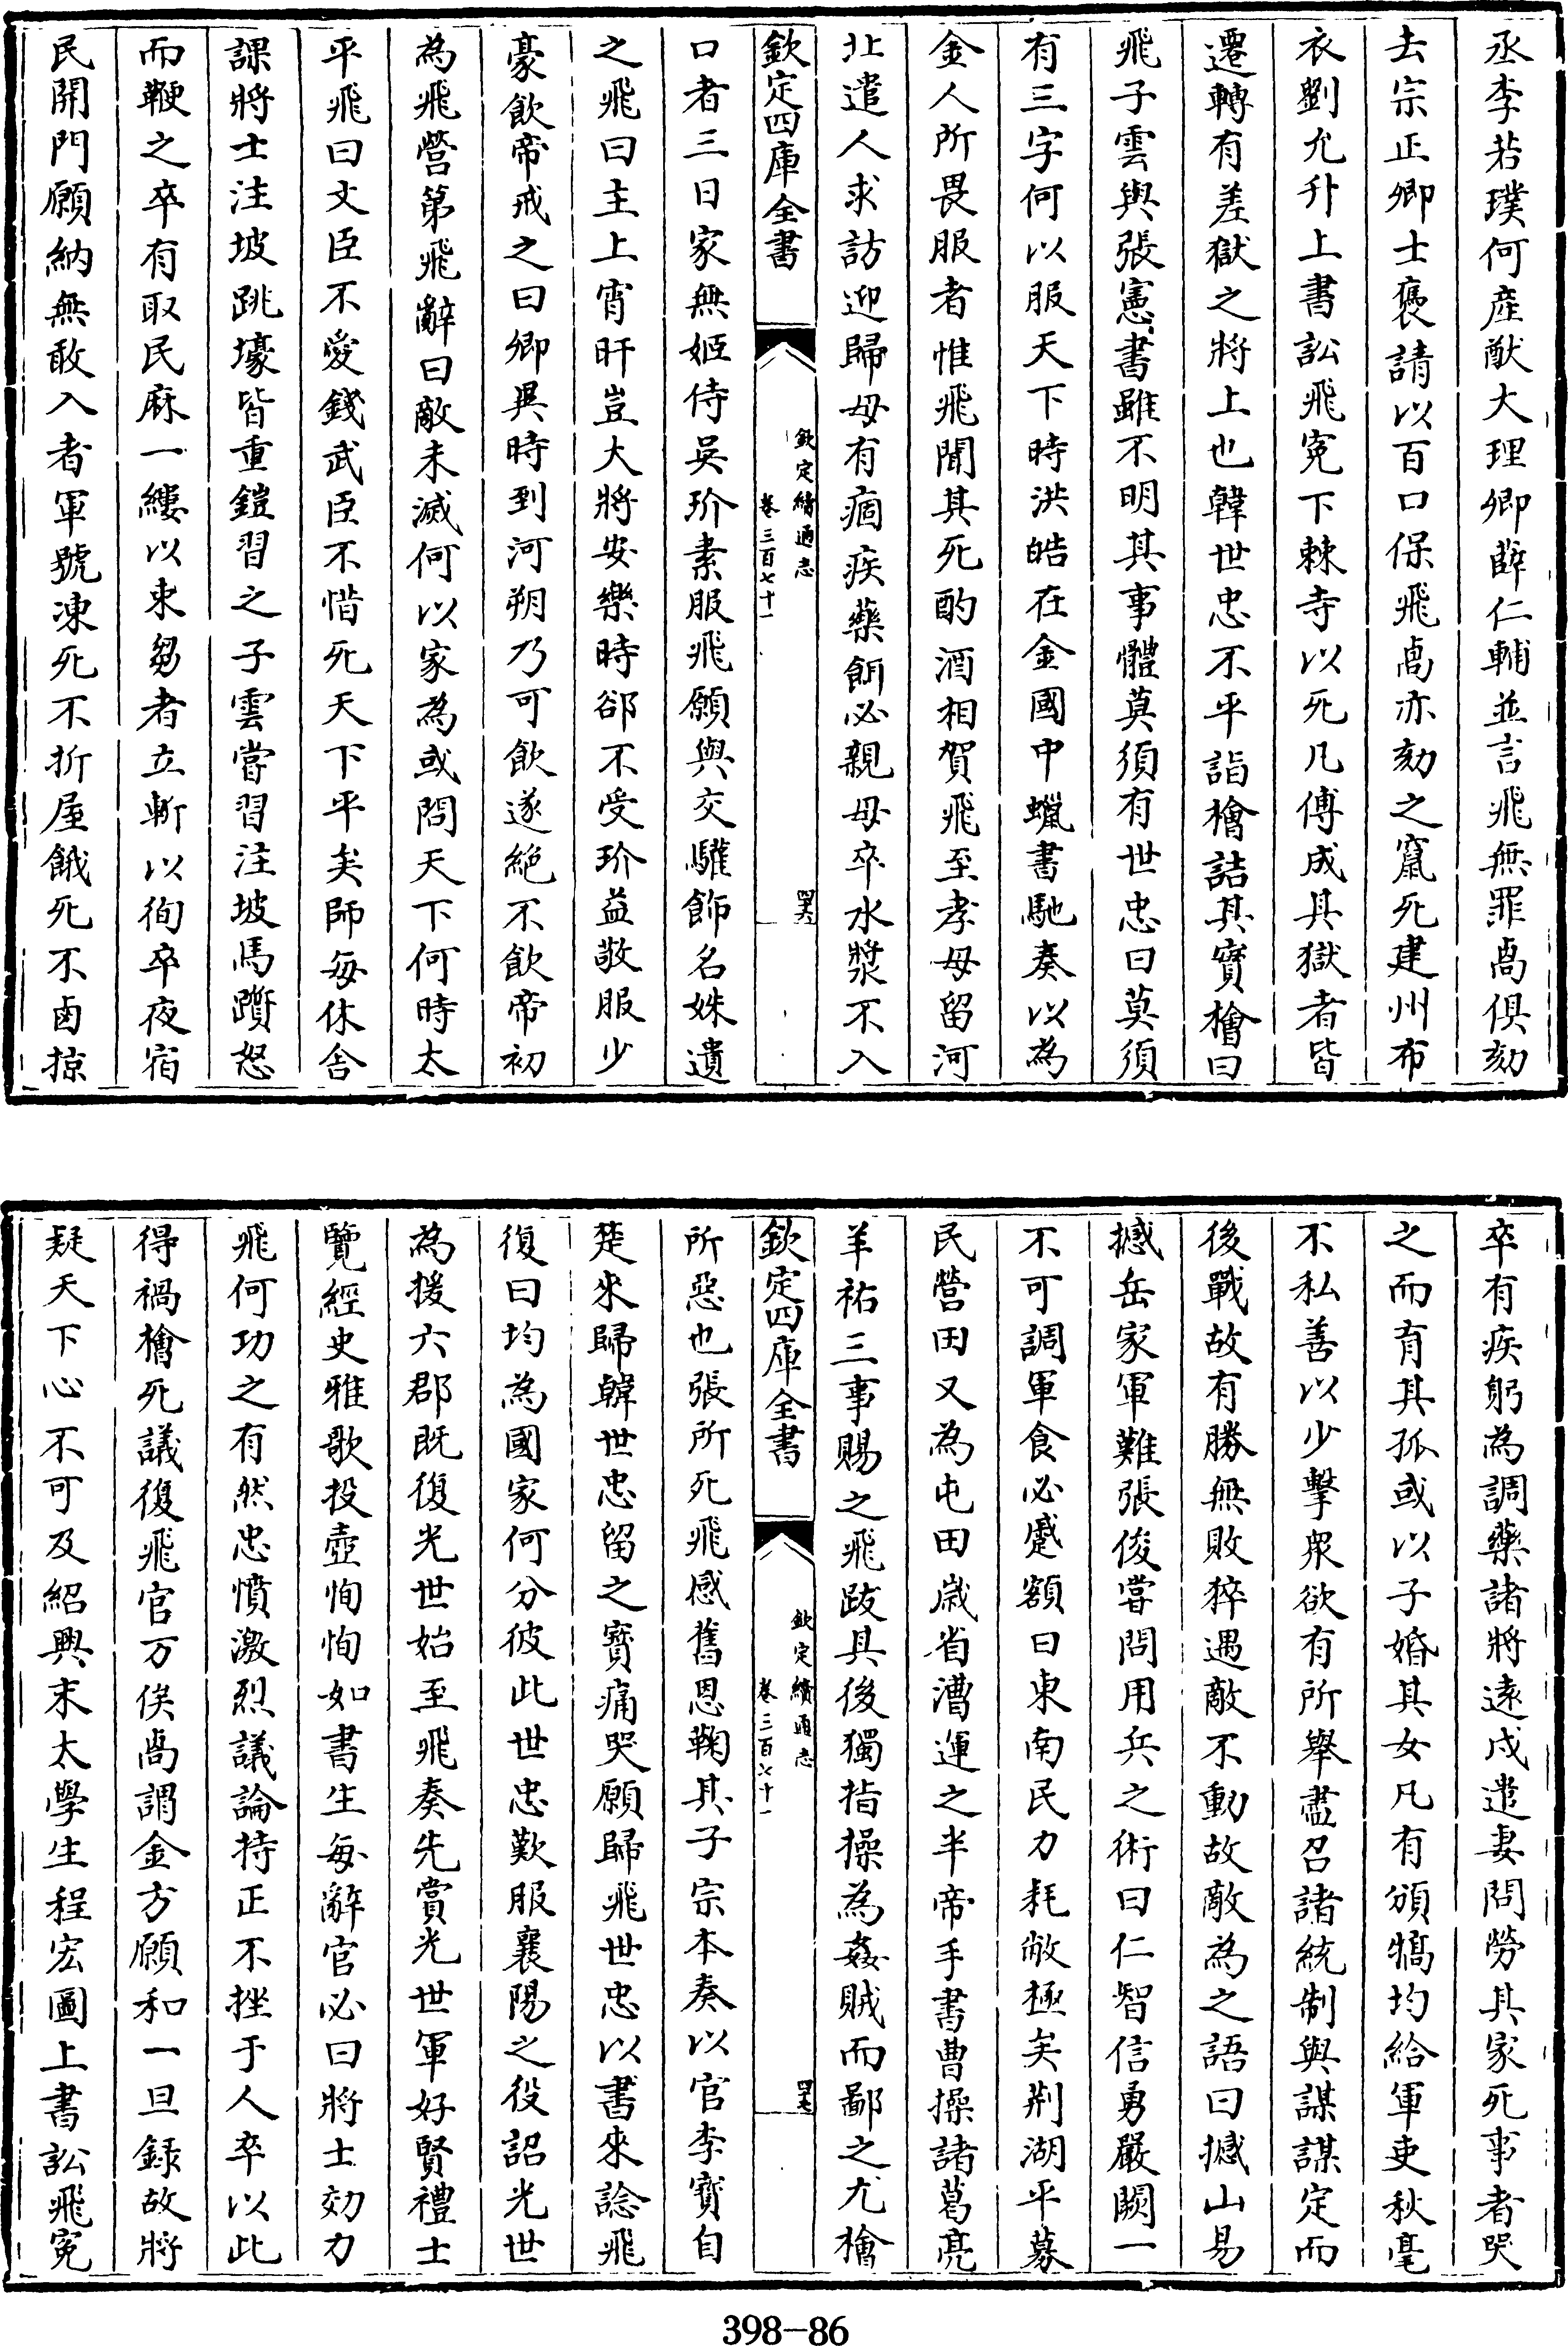 丞李若璞何彦猷大理卿薛仁輔並言飛無罪卨俱劾
去宗正卿士㒟請以百口保飛卨亦劾之竄死建州布
衣劉允升上書訟飛寃下棘寺以死凡傅成其獄者皆
遷轉有差獄之將上也韓世忠不平詣檜詰其實檜曰
飛子雲與張憲書雖不明其事體莫須有世忠曰莫須
有三字何以服天下時洪皓在金國中蠟書馳奏以為
金人所畏服者惟飛聞其死酌酒相賀飛至孝母留河
北遣人求訪迎歸母有痼疾藥餌必親母卒水漿不入
欽定四庫全書
欽定續通志
卷三百七十一
四六
口者三日家無姬侍吳玠素服飛願與交驩飾名姝遺
之飛曰主上宵旰豈大將安樂時郤不受玠益敬服少
豪飲帝戒之曰卿異時到河朔乃可飲遂絶不飲帝初
為飛營第飛辭曰敵未滅何以家為或問天下何時太
平飛曰文臣不愛錢武臣不惜死天下平矣師每休舍
課將士注坡跳壕皆重鎧習之子雲嘗習注坡馬躓怒
而鞭之卒有取民麻一縷以束芻者立斬以徇卒夜宿
民開門願納無敢入者軍號凍死不折屋餓死不鹵掠
卒有疾躬為調藥諸將遠戍遣妻問勞其家死事者哭
之而育其孤或以子婚其女凡有頒犒均給軍吏秋毫
不私善以少擊衆欲有所舉盡召諸統制與謀謀定而
後戰故有勝無敗猝遇敵不動故敵為之語曰撼山易
撼岳家軍難張俊嘗問用兵之術曰仁智信勇嚴闕一
不可調軍食必蹙額曰東南民力耗敝極矣荆湖平募
民營田又為屯田歲省漕運之半帝手書曹操諸葛亮
羊祜三事賜之飛跋其後獨指操為姦賊而鄙之尤檜
欽定四庫全書
欽定續通志
卷三百七十一
四七
所惡也張所死飛感舊恩鞠其子宗本奏以官李寳自
楚來歸韓世忠留之寳痛哭願歸飛世忠以書來諗飛
復曰均為國家何分彼此世忠歎服襄陽之役詔光世
為援六郡既復光世始至飛奏先賞光世軍好賢禮士
覽經史雅歌投壺恂恂如書生每辭官必曰將士効力
飛何功之有然忠憤激烈議論持正不挫于人卒以此
得禍檜死議復飛官万俟卨謂金方願和一旦録故將
疑天下心不可及紹興末太學生程宏圖上書訟飛寃
398-86